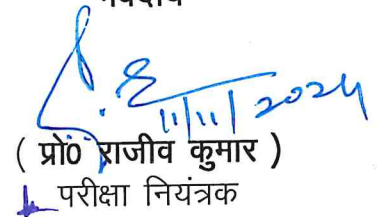 11/11/2024
( प्रो0 राजीव कुमार )
परीक्षा नियंत्रक